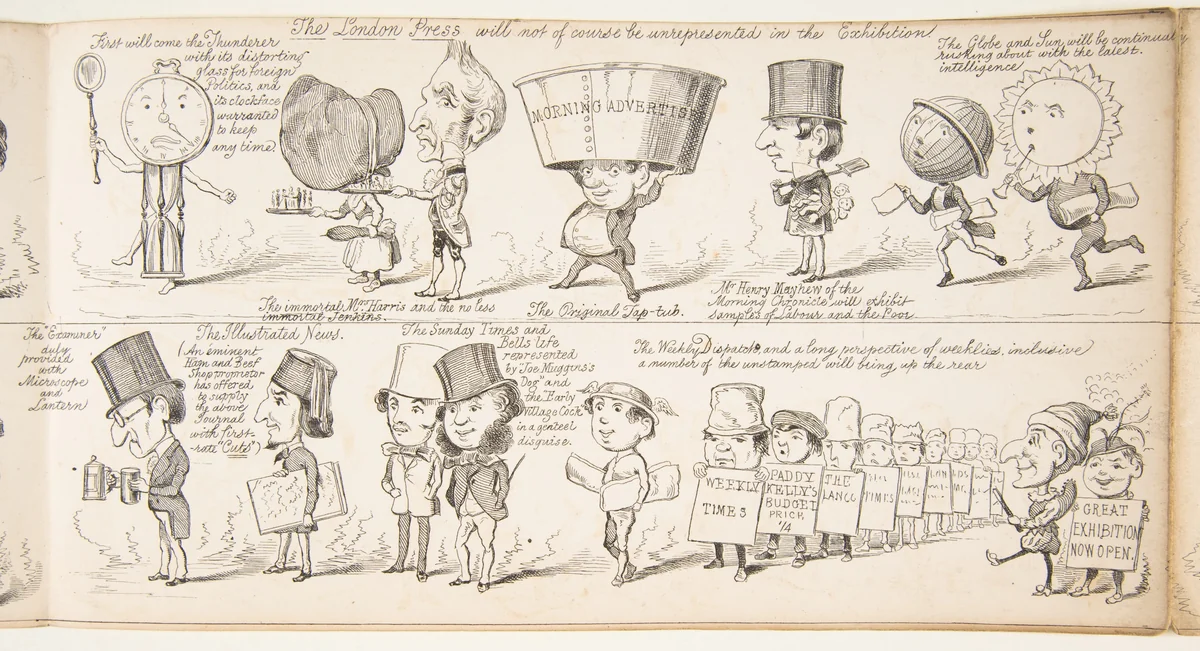 The London Press will not of course be unrepresented in the Exhibition.
First will come the Thunderer
with its distorting
glass for foreign
Politics, and
its clockface
warranted
to keep
any time.
MORNING ADVERTIS
The Globe and Sun will be continually
rushing about with the latest.
intelligence
The immortal Mrs Harris and the no less
immortal Jenkins.
The Original Tap-tub.
Mr Henry Mayhew of the
Morning Chronicle will exhibit
samples of Labour and the Poor.
The "Examiner"
duly
provided
with
Microscope
and
Lantern
The Illustrated News.
(An eminent
Ham and Beef
Shop proprietor
has offered
to supply
the above
Journal
with first-
-rate "Cuts")
The Sunday Times and
Bells life
represented
by Joe Muggins's
Dog" and
the "Early
Village Cock"
in a genteel
disguise.
The Weekly Dispatch, and a long perspective of weeklies, inclusive
a number of the unstamped will bring up the rear
WEEKLY
TIMES
PADDY
KELLY'S
BUDGET
PRICE
1/4
THE
LANCO
TIMES
GREAT
EXHIBITION
NOW OPEN.